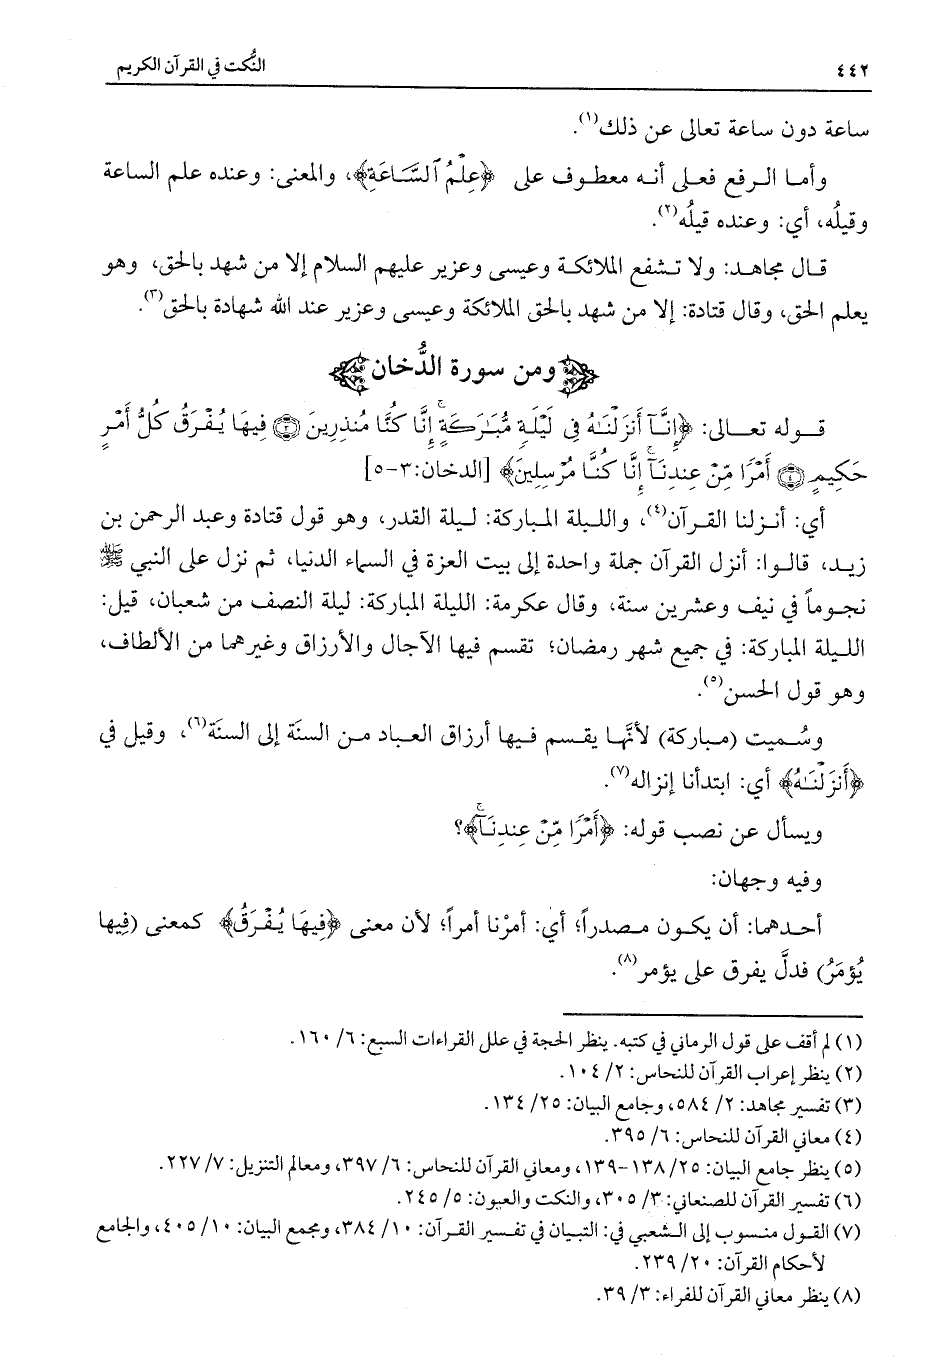 ٤٤٢ النُّكت في القرآن الكريم
ساعة دون ساعة تعالى عن ذلك(١).
وأما الرفع فعلى أنه معطوف على ﴿عِلْمُ ٱلسَّاعَةِ﴾، والمعنى: وعنده علم الساعة
وقيلُه، أي: وعنده قيلُه(٢).
قال مجاهد: ولا تشفع الملائكة وعيسى وعزير عليهم السلام إلا من شهد بالحق، وهو
يعلم الحق، وقال قتادة: إلا من شهد بالحق الملائكة وعيسى وعزير عند الله شهادة بالحق(٣).
ومن سورة الدُّخان
قوله تعالى: ﴿إِنَّآ أَنزَلْنَٰهُ فِى لَيْلَةٍ مُّبَٰرَكَةٍ ۚ إِنَّا كُنَّا مُنذِرِينَ ۝٣ فِيهَا يُفْرَقُ كُلُّ أَمْرٍ
حَكِيمٍ ۝٤ أَمْرًا مِّنْ عِندِنَآ ۚ إِنَّا كُنَّا مُرْسِلِينَ﴾ [الدخان:٣-٥]
أي: أنزلنا القرآن(٤)، والليلة المباركة: ليلة القدر، وهو قول قتادة وعبد الرحمن بن
زيد، قالوا: أنزل القرآن جملة واحدة إلى بيت العزة في السماء الدنيا، ثم نزل على النبي ﷺ
نجوماً في نيف وعشرين سنة، وقال عكرمة: الليلة المباركة: ليلة النصف من شعبان، قيل:
الليلة المباركة: في جميع شهر رمضان؛ تقسم فيها الآجال والأرزاق وغيرهما من الألطاف،
وهو قول الحسن(٥).
وسُميت (مباركة) لأنَّها يقسم فيها أرزاق العباد من السنَة إلى السنَة(٦)، وقيل في
﴿أَنزَلْنَٰهُ﴾ أي: ابتدأنا إنزاله(٧).
ويسأل عن نصب قوله: ﴿أَمْرًا مِّنْ عِندِنَآ ۚ﴾؟
وفيه وجهان:
أحدهما: أن يكون مصدراً؛ أي: أمرْنا أمراً؛ لأن معنى ﴿فِيهَا يُفْرَقُ﴾ كمعنى (فِيها
يُؤمَرُ) فدلَّ يفرق على يؤمر(٨).
(١) لم أقف على قول الرماني في كتبه. ينظر الحجة في علل القراءات السبع: ٦/ ١٦٠.
(٢) ينظر إعراب القرآن للنحاس: ٢/ ١٠٤.
(٣) تفسير مجاهد: ٢/ ٥٨٤، وجامع البيان: ٢٥/ ١٣٤.
(٤) معاني القرآن للنحاس: ٦/ ٣٩٥.
(٥) ينظر جامع البيان: ٢٥/ ١٣٨-١٣٩، ومعاني القرآن للنحاس: ٦/ ٣٩٧، ومعالم التنزيل: ٧/ ٢٢٧.
(٦) تفسير القرآن للصنعاني: ٣/ ٣٠٥، والنكت والعيون: ٥/ ٢٤٥.
(٧) القول منسوب إلى الشعبي في: التبيان في تفسير القرآن: ١٠/ ٣٨٤، ومجمع البيان: ١٠/ ٤٠٥، والجامع
لأحكام القرآن: ٢٠/ ٢٣٩.
(٨) ينظر معاني القرآن للفراء: ٣/ ٣٩.